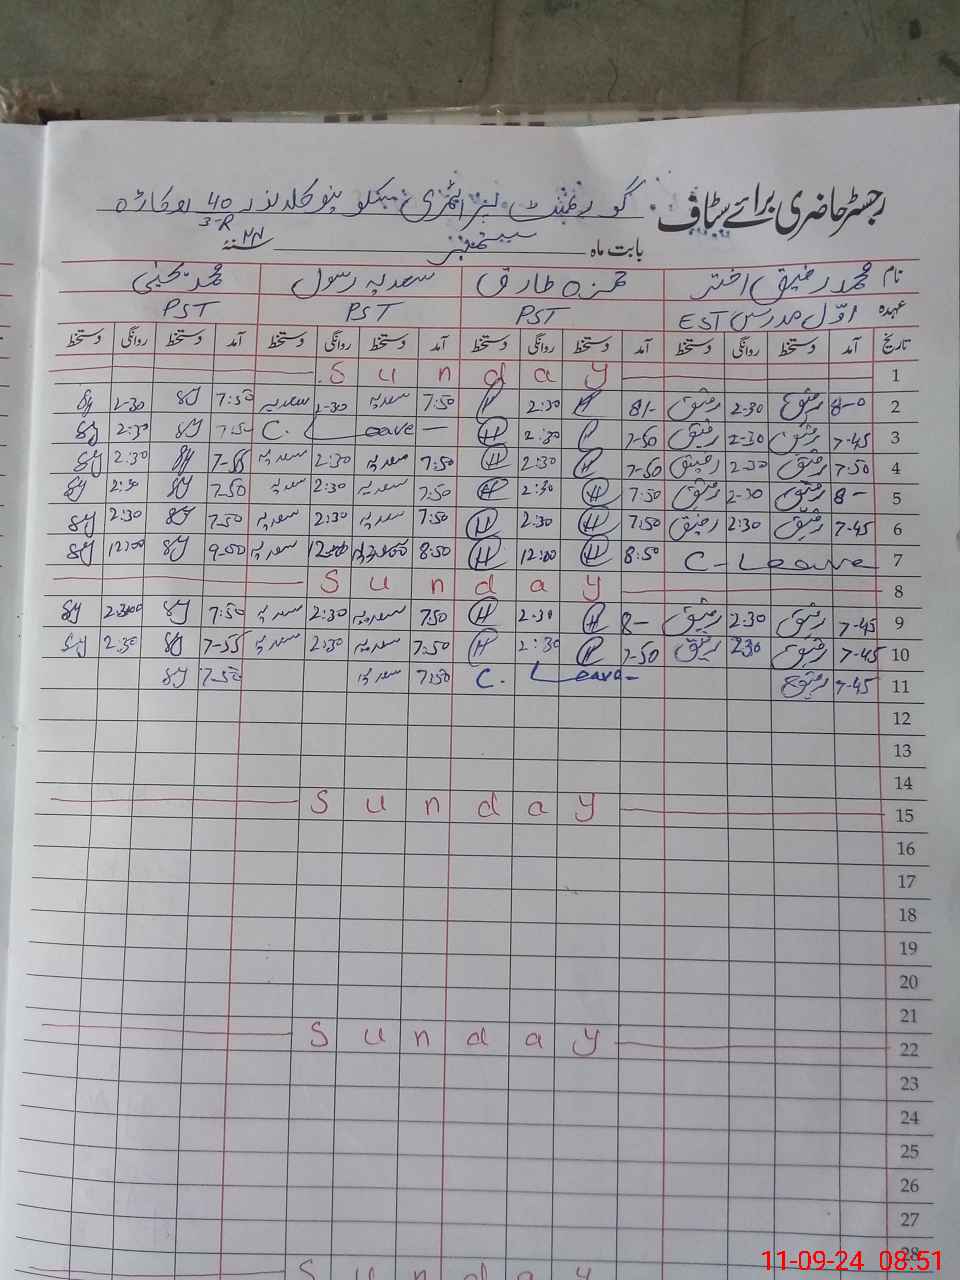 رجسٹر حاضری برائے سٹاف گورنمنٹ پرائمری سکول پنوکلاں نزد 40 اوکاڑہ
3-R
بابت ماہ ستمبر ۲۰۲۴ء
نام محمد رفیق اختر حمزہ طارق سعدیہ رسول محمد یحییٰ
عہدہ اوّل مدرس EST PST PST PST
تاریخ آمد دستخط روانگی دستخط آمد دستخط روانگی دستخط آمد دستخط روانگی دستخط آمد دستخط روانگی دستخط
1 Sunday
2 8-0 رفیق 2-30 رفیق 8/- H 2:30 H 7:50 سعدیہ 2-30 سعدیہ 7:50 2-30
3 7-45 رفیق 2-30 رفیق 7-50 H 2:30 H C. Leave - 7:50 2:30
4 7-50 رفیق 2-30 رفیق 7-50 H 2:30 H 7:50 سعدیہ 2:30 سعدیہ 7-55 2:30
5 8- رفیق 2-30 رفیق 7:50 H 2:30 H 7:50 سعدیہ 2:30 سعدیہ 7-50 2:30
6 7-45 رفیق 2:30 رفیق 7:50 H 2:30 H 7:50 سعدیہ 2:30 سعدیہ 7:50 2:30
7 C- Leave 8:50 H 12:00 H 8:50 12:00 سعدیہ 9-00 12:00
8 Sunday
9 7-45 رفیق 2:30 رفیق 8- H 2:30 H 7:50 سعدیہ 2:30 سعدیہ 7:50 2:30
10 7-45 رفیق 2:30 رفیق 7-50 H 2:30 H 7:50 سعدیہ 2:30 سعدیہ 7-55 2:30
11 7-45 رفیق C. Leave- 7:50 سعدیہ 7-50
12
13
14
15 Sunday
16
17
18
19
20
21
22 Sunday
23
24
25
26
27
28
Sunday
11-09-24 08:51